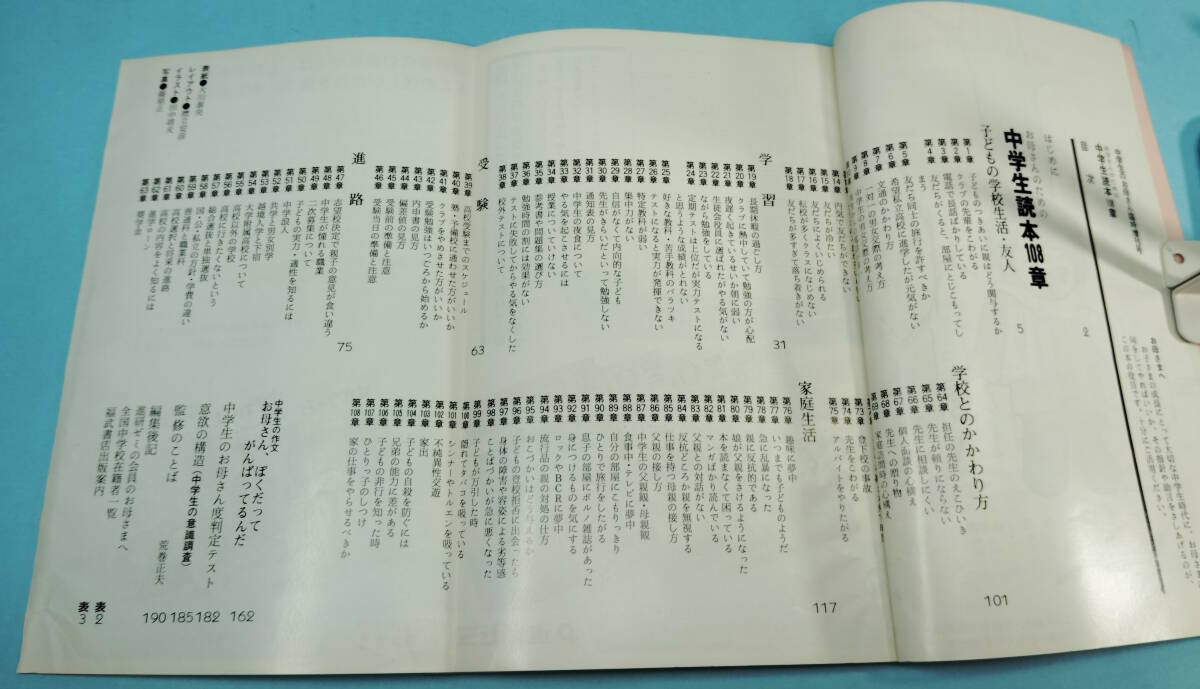 目次
はじめに 2
お母さんのための
中学生読本108章
子どもの学校生活・友人 5
第1章 子どものつきあいに親はどう関与するか
第2章 クラブの先輩をこわがる
第3章 電話で長話ばかりしている
第4章 友だちが来ると、部屋にとじこもってしまう
第5章 友だち同士の旅行を許すべきか
第6章 希望私立高校に進学したが元気がない
第7章 文通のかかわり方
第8章 一対一の男女交際の考え方
第14章
第15章 友だちが冷たい
第16章 友だちによくいじめられる
第17章 転校が多くクラスになじめない
第18章 友だちが多すぎて落ち着きがない
学習 31
第19章 長期休暇の過ごし方
第20章 クラブに熱中していて勉強の方が心配
第21章 夜遅くまで起きているせいか朝に弱い
第22章 生徒会役員に選ばれたがやる気がない
第23章 ながら勉強をしている
第24章 定期テストは上位だが実力テストになると思うような成績がとれない
第25章 好きな教科・苦手教科のバラツキ
第26章 テストになると実力が発揮できない
第27章 特定教科が弱い
第28章 集中力がない
第29章 自信がなくて内向的な子ども
第30章 先生がきらいだといって勉強しない
第31章 通知表の見方
第32章 中学生の夜食について
第33章 やる気を起こさせるには
第34章 授業についていけない
第35章 参考書や問題集の選び方
第36章 勉強時間の割には効果がない
第37章 テストに失敗してからやる気をなくした
第38章 校外テストについて
受験 63
第39章 高校受験までのスケジュール
第40章 塾・予備校に通わせた方がいいか
第41章 クラブをやめさせた方がいいか
第42章 受験勉強はいつごろから始めるか
第43章 内申書の見方
第44章 偏差値の見方
第45章 受験前の準備と注意
第46章 受験当日の準備と注意
進路 75
第47章 志望校決定で親子の意見が食い違う
第48章 中学生が憧れる職業
第49章 二次募集について
第50章 子どもの実力・適性を知るには
第51章 中学浪人
第52章 共学と男女別学
第53章 越境入学と下宿
第54章 大学附属高校について
第55章 高校以外の学校
第56章 高校に行きたくないという
第57章 総合選抜と単独選抜
第58章 国・公・私立の方針・学費の違い
第59章 普通科と職業科
第60章 高校選択と将来の進路
第61章 高校の内容をよく知るには
第62章 進学ローン
第63章 奨学金
表紙●
レイアウト●
イラスト●
写真●
学校とのかかわり方 101
第64章 担任の先生のえこひいき
第65章 先生が頼りにならない
第66章 先生に相談しにくい
第67章 個人面談の心構え
第68章 先生への贈り物
第69章 家庭訪問時の心構え
第73章 登下校の事故
第74章 先生をこわがる
第75章 アルバイトをやりたがる
家庭生活 117
第76章 趣味に夢中
第77章 いつまでも子どものようだ
第78章 急に乱暴になった
第79章 親に反抗的である
第80章 娘が父親をさけるようになった
第81章 本を読まなくて困っている
第82章 マンガばかり読んでいる
第83章 父親との対話がない
第84章 反抗どころか親を無視する
第85章 仕事を持つ母親の接し方
第86章 父親の接し方
第87章 中学生の父親観・母親観
第88章 食事中・テレビに夢中
第89章 自分の部屋にこもりっきり
第90章 ひとりで旅行をしたがる
第91章 息子の部屋にポルノ雑誌があった
第92章 身につけるものを気にする
第93章 ロックやBCRに夢中
第94章 流行語の親の対処の仕方
第95章 おこづかいはどう与えるか
第96章 子どもの登校拒否に出会ったら
第97章 身体の障害や容姿による劣等感
第98章 ことばづかいが急に悪くなった
第99章 子どもが万引した時
第100章 隠れてタバコを吸っている
第101章 シンナーやトルエンを吸っている
第102章 不純異性交遊
第103章 家出
第104章 子どもの自殺を防ぐには
第105章 兄弟の能力に差がある
第106章 子どもの非行を知った時
第107章 ひとりっ子のしつけ
第108章 家の仕事をやらせるべきか
中学生の作文
お母さん、ぼくだって
がんばってるんだ 162
中学生のお母さん度判定テスト 182
意欲の構造(中学生の意識調査) 185
監修のことば 荒巻正夫 190
編集後記
進研ゼミの会員のお母さまへ
全国中学校在籍者一覧 表2
福武書店出版案内 表3
お母さまへ